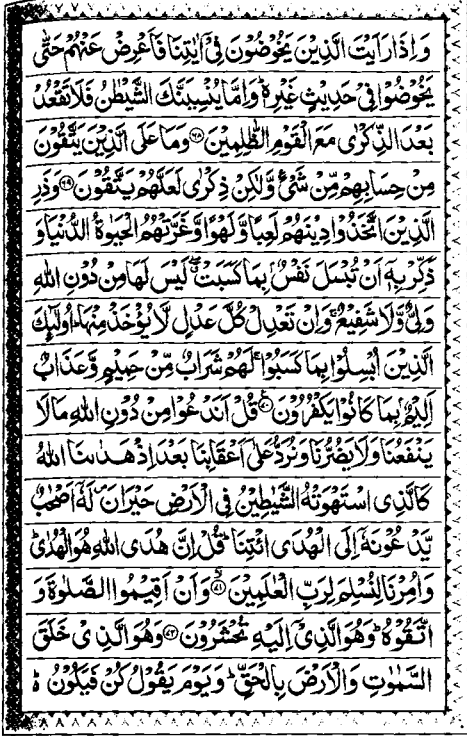 وَاِذَا رَاَيْتَ الَّذِيْنَ يَخُوْضُوْنَ فِيْۤ اٰيٰتِنَا فَاَعْرِضْ عَنْهُمْ حَتّٰى
يَخُوْضُوْا فِيْ حَدِيْثٍ غَيْرِهٖ ؕ وَاِمَّا يُنْسِيَنَّكَ الشَّيْطٰنُ فَلَا تَقْعُدْ
بَعْدَ الذِّكْرٰى مَعَ الْقَوْمِ الظّٰلِمِيْنَ ﴿۶۸﴾ وَمَا عَلَى الَّذِيْنَ يَتَّقُوْنَ
مِنْ حِسَابِهِمْ مِّنْ شَيْءٍ وَّلٰكِنْ ذِكْرٰى لَعَلَّهُمْ يَتَّقُوْنَ ﴿۶۹﴾ وَذَرِ
الَّذِيْنَ اتَّخَذُوْا دِيْنَهُمْ لَعِبًا وَّلَهْوًا وَّغَرَّتْهُمُ الْحَيٰوةُ الدُّنْيَا وَ
ذَكِّرْ بِهٖۤ اَنْ تُبْسَلَ نَفْسٌۢ بِمَا كَسَبَتْ ۖ لَيْسَ لَهَا مِنْ دُوْنِ اللّٰهِ
وَلِيٌّ وَّلَا شَفِيْعٌ ۚ وَاِنْ تَعْدِلْ كُلَّ عَدْلٍ لَّا يُؤْخَذْ مِنْهَا ؕ اُولٰٓئِكَ
الَّذِيْنَ اُبْسِلُوْا بِمَا كَسَبُوْا ۚ لَهُمْ شَرَابٌ مِّنْ حَمِيْمٍ وَّعَذَابٌ
اَلِيْمٌۢ بِمَا كَانُوْا يَكْفُرُوْنَ ﴿۷۰﴾ قُلْ اَنَدْعُوْا مِنْ دُوْنِ اللّٰهِ مَا لَا
يَنْفَعُنَا وَلَا يَضُرُّنَا وَنُرَدُّ عَلٰۤى اَعْقَابِنَا بَعْدَ اِذْ هَدٰىنَا اللّٰهُ
كَالَّذِي اسْتَهْوَتْهُ الشَّيٰطِيْنُ فِي الْاَرْضِ حَيْرَانَ ۪ لَهٗۤ اَصْحٰبٌ
يَّدْعُوْنَهٗۤ اِلَى الْهُدَى ائْتِنَا ؕ قُلْ اِنَّ هُدَى اللّٰهِ هُوَ الْهُدٰى ؕ
وَاُمِرْنَا لِنُسْلِمَ لِرَبِّ الْعٰلَمِيْنَ ﴿۷۱﴾ وَاَنْ اَقِيْمُوا الصَّلٰوةَ وَ
اتَّقُوْهُ ؕ وَهُوَ الَّذِيْۤ اِلَيْهِ تُحْشَرُوْنَ ﴿۷۲﴾ وَهُوَ الَّذِيْ خَلَقَ
السَّمٰوٰتِ وَالْاَرْضَ بِالْحَقِّ ؕ وَيَوْمَ يَقُوْلُ كُنْ فَيَكُوْنُ ؕ